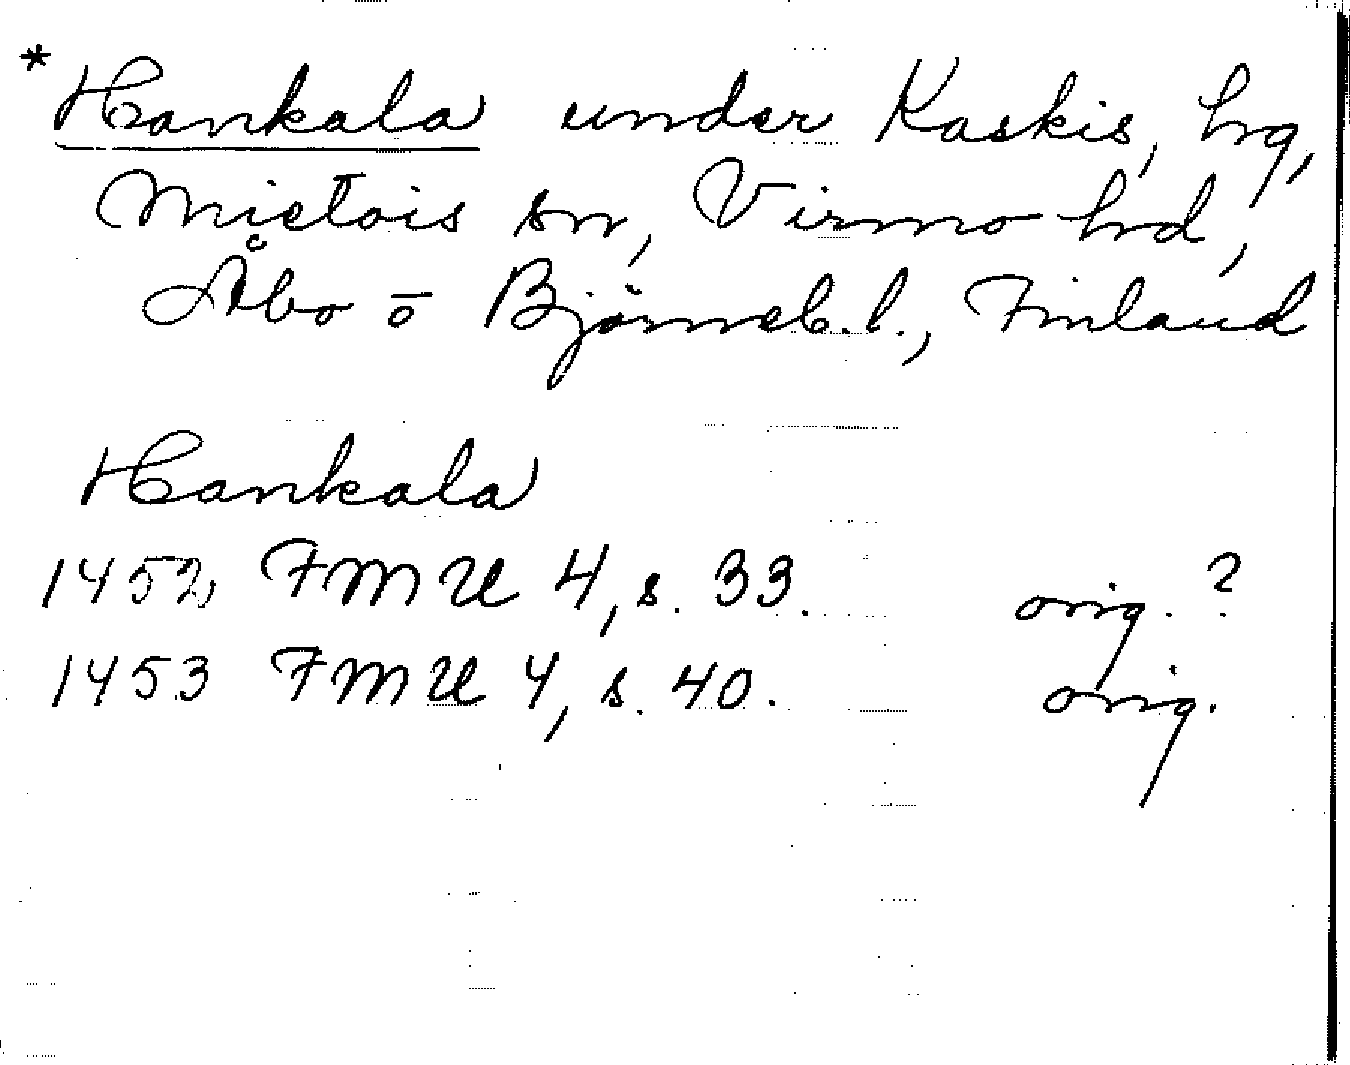 * Hankala under Kaskis, hg,
Mietois sn, Virmo hd,
Åbo o Björneb. l., Finland
Hankala
1452 FMU 4, s. 33. orig. ?
1453 FMU 4, s. 40. orig.